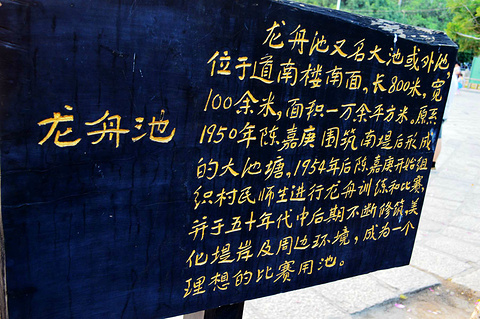 龙舟池
龙舟池又名大池或外池,
位于道南楼南面,长800米,宽
100余米,面积一万余平方米。原系
1950年陈嘉庚围筑南堤后形成
的大池塘,1954年后陈嘉庚开始组
织村民师生进行龙舟训练和比赛,
并于五十年代中后期不断修筑,美
化堤岸及周边环境,成为一个
理想的比赛用池。